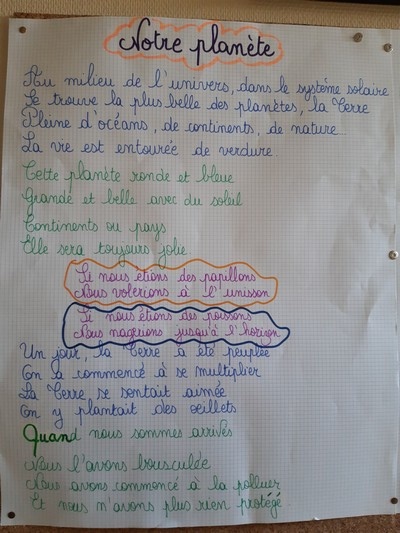 Notre planète
Au milieu de l'univers, dans le système solaire
Se trouve la plus belle des planètes, la Terre
Pleine d'océans, de continents, de nature
La vie est entourée de verdure.
Cette planète ronde et bleue
Grande et belle avec du soleil
Continents ou pays
Elle sera toujours jolie.
Si nous étions des papillons
Nous volerions à l'unisson
Si nous étions des poissons
Nous nagerions jusqu'à l'horizon
Un jour, la Terre a été peuplée
On a commencé à se multiplier
La Terre se sentait aimée
On y plantait des oeillets
Quand nous sommes arrivés
Nous l'avons bousculée
Nous avons commencé à la polluer
Et nous n'avons plus rien protégé.